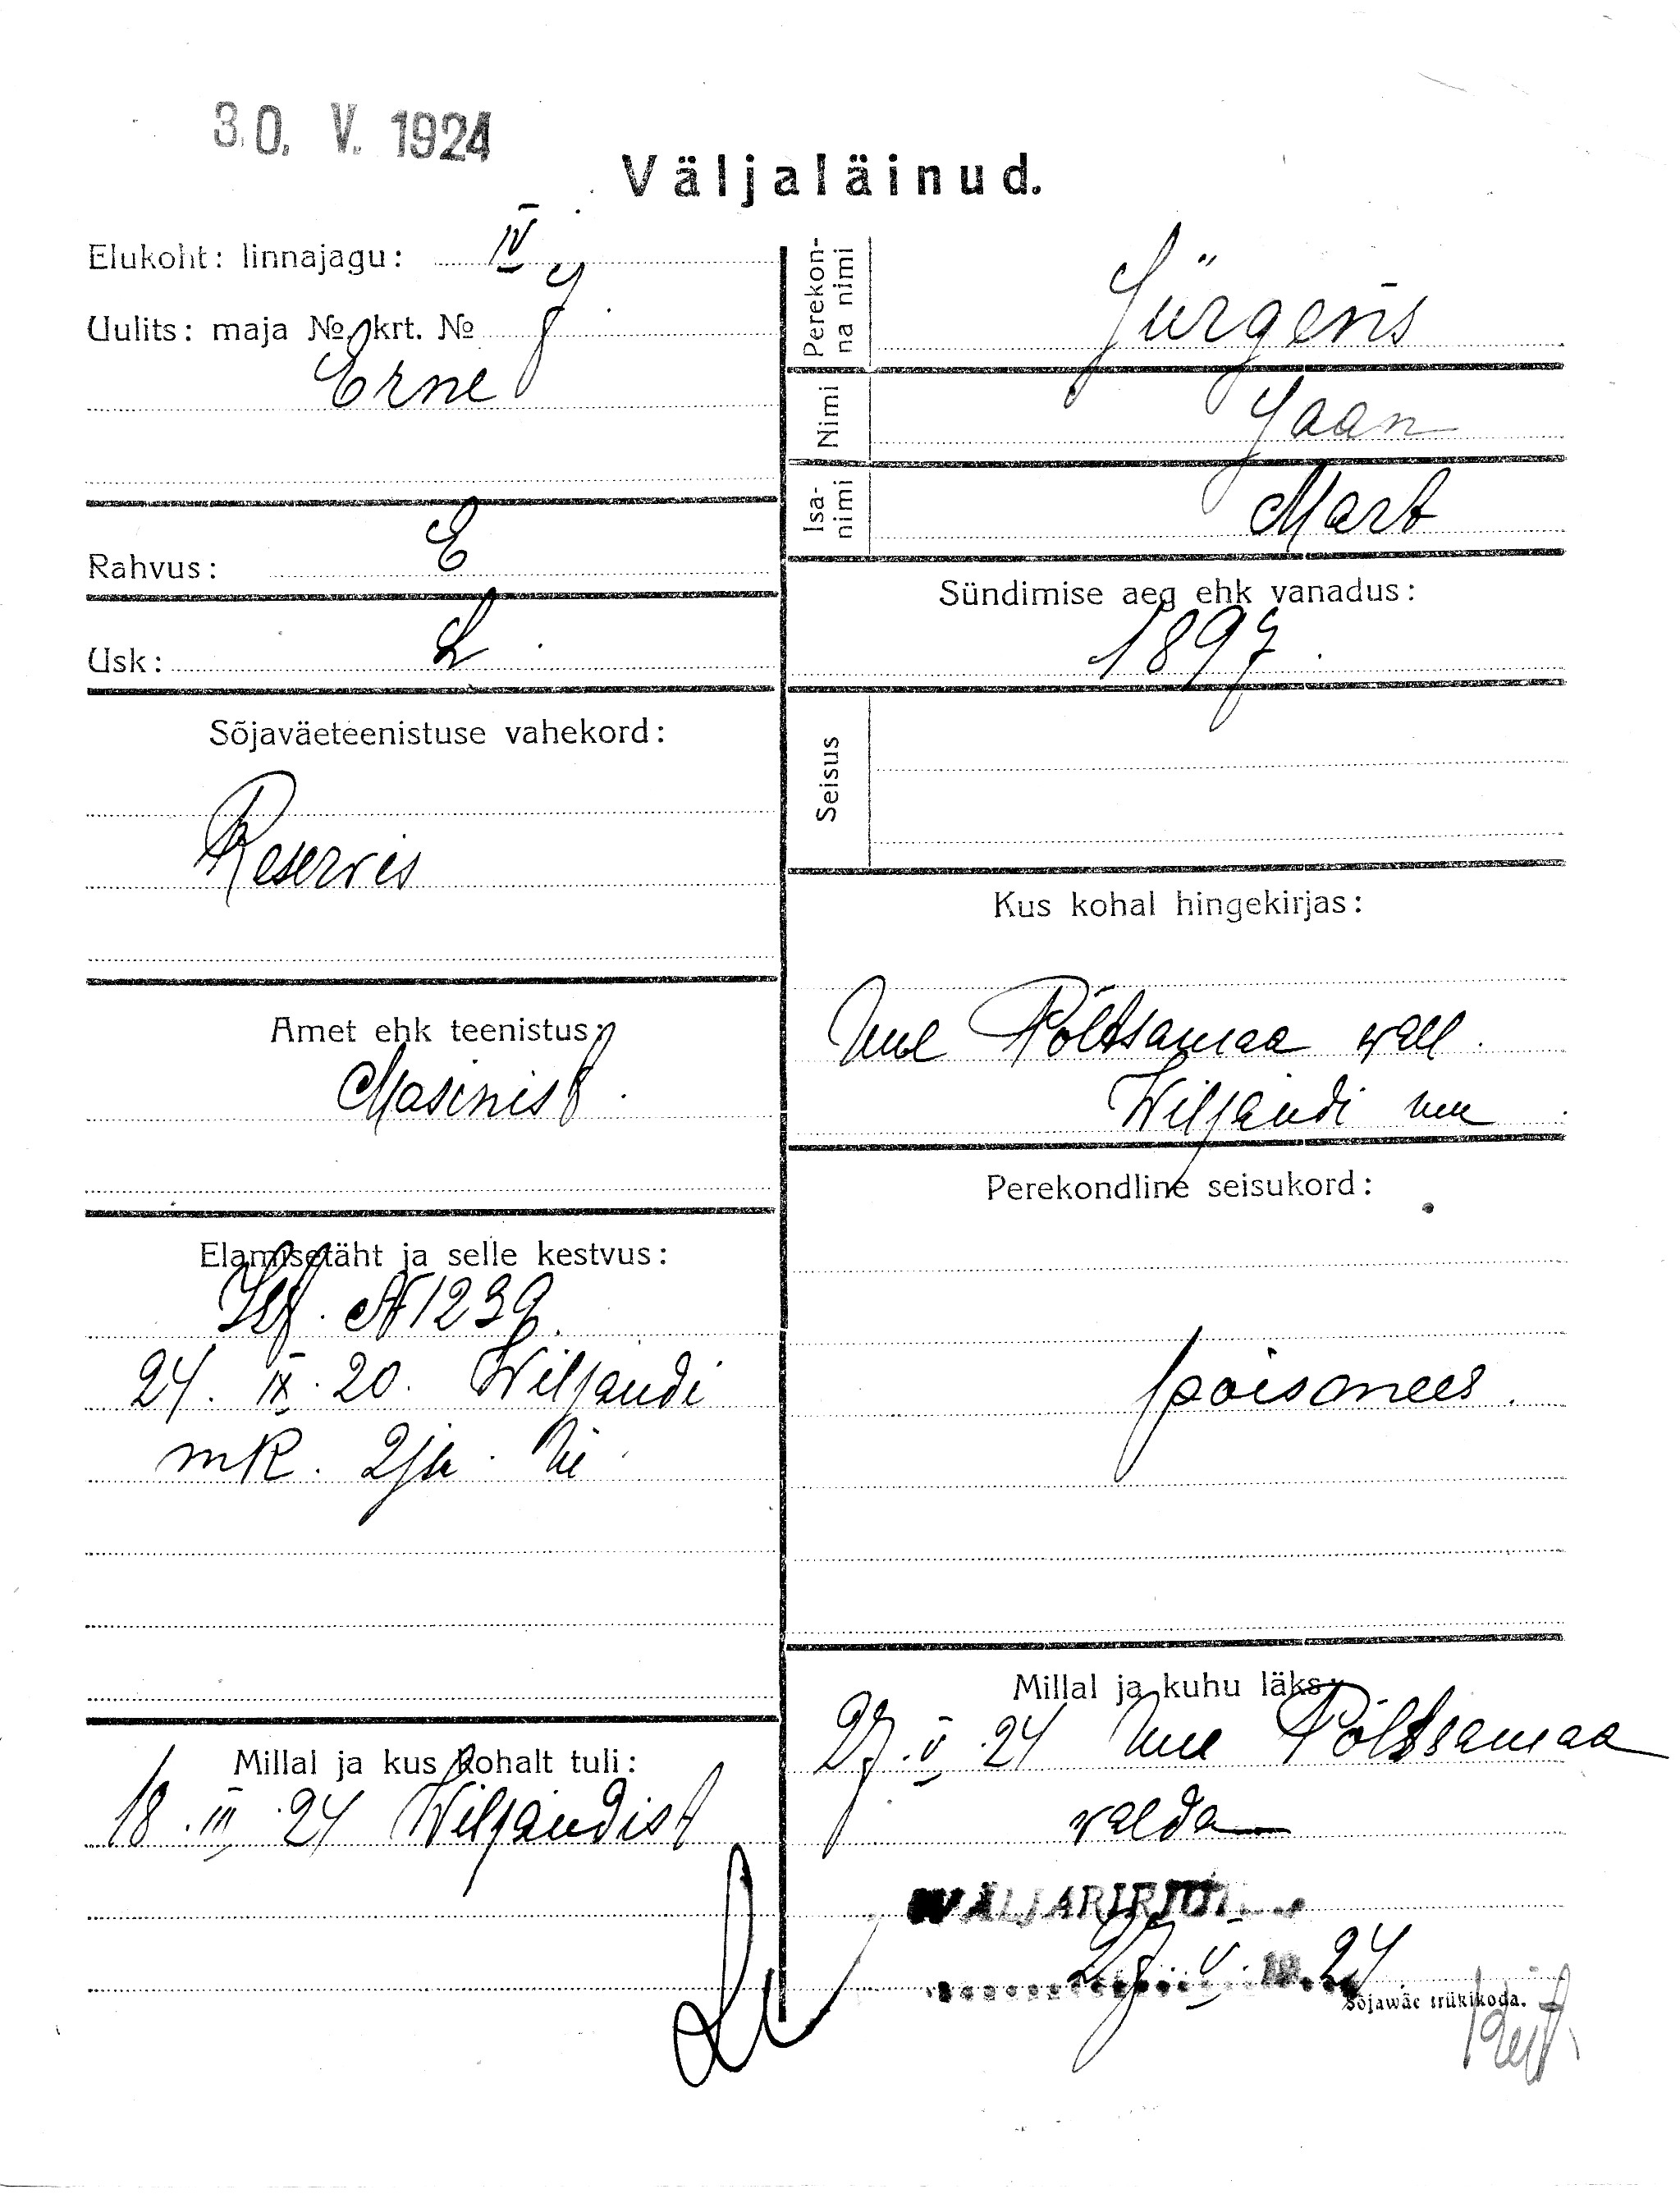 30. V. 1924
Väljaläinud.
Elukoht: linnajagu: IV
Uulits: maja № krt. № 9
Erne
Rahvus: E
Usk: L
Sõjaväeteenistuse vahekord:
Reservis
Amet ehk teenistus:
Masinist.
Elamisetäht ja selle kestvus:
Isf. N 1239.
24. IX. 20. Wiljandi
mk. 2 ja.
Millal ja kus kohalt tuli:
18. III. 24 Wiljandist
Perekon-
na nimi
Jürgens
Nimi
Jaan
Isa-
nimi
Mart
Sündimise aeg ehk vanadus:
1897.
Seisus
Kus kohal hingekirjas:
Uue Põltsamaa wall.
Wiljandi mk
Perekondline seisukord:
poismees.
Millal ja kuhu läks:
27. V. 24 Uue Põltsamaa
walda
27. V. 1924
Sõjawäe trükikoda.